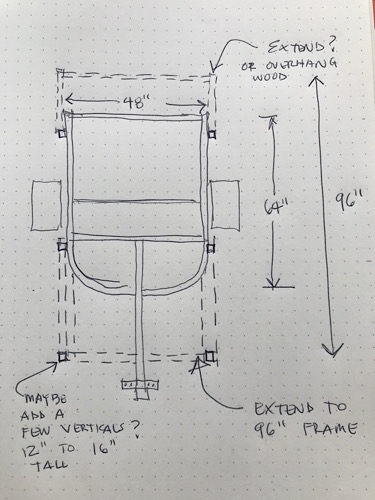 EXTEND?
OR OVERHANG
WOOD
48"
64"
96"
MAYBE
ADD A
FEW VERTICALS?
12" TO 16"
TALL
EXTEND TO
96" FRAME